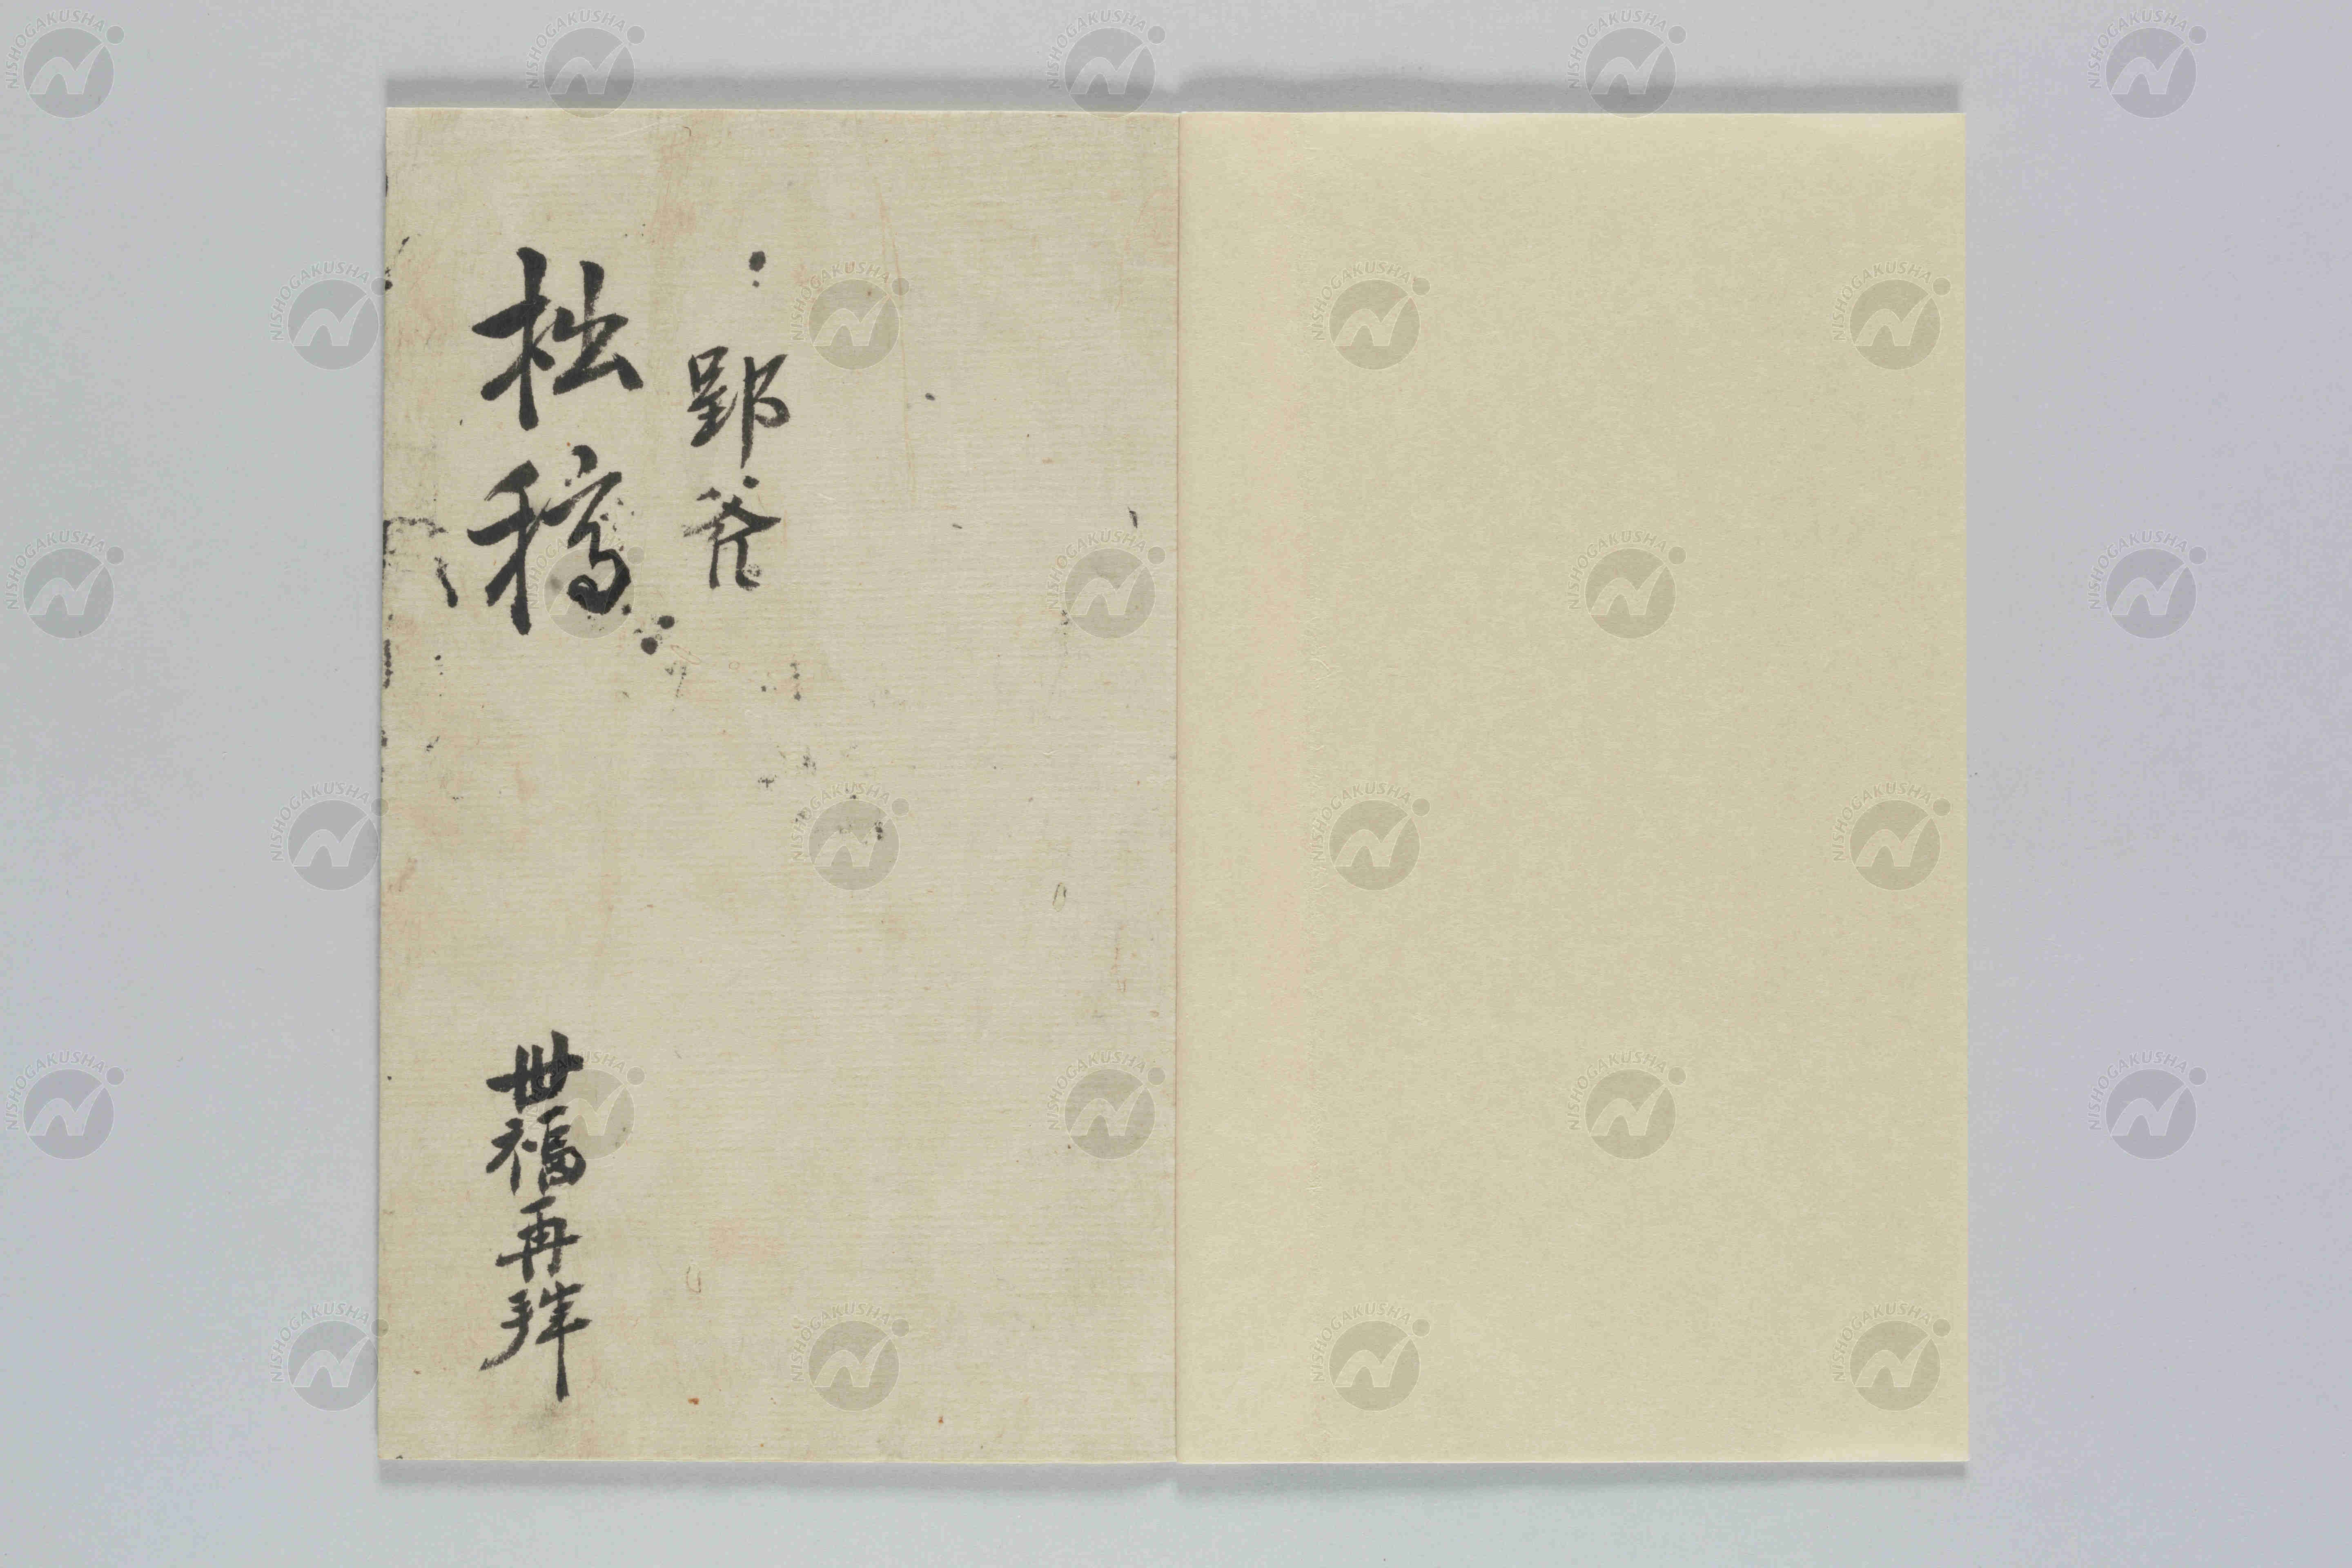 郢斧
拙稿
世福再拜
NISHOGAKUSHA